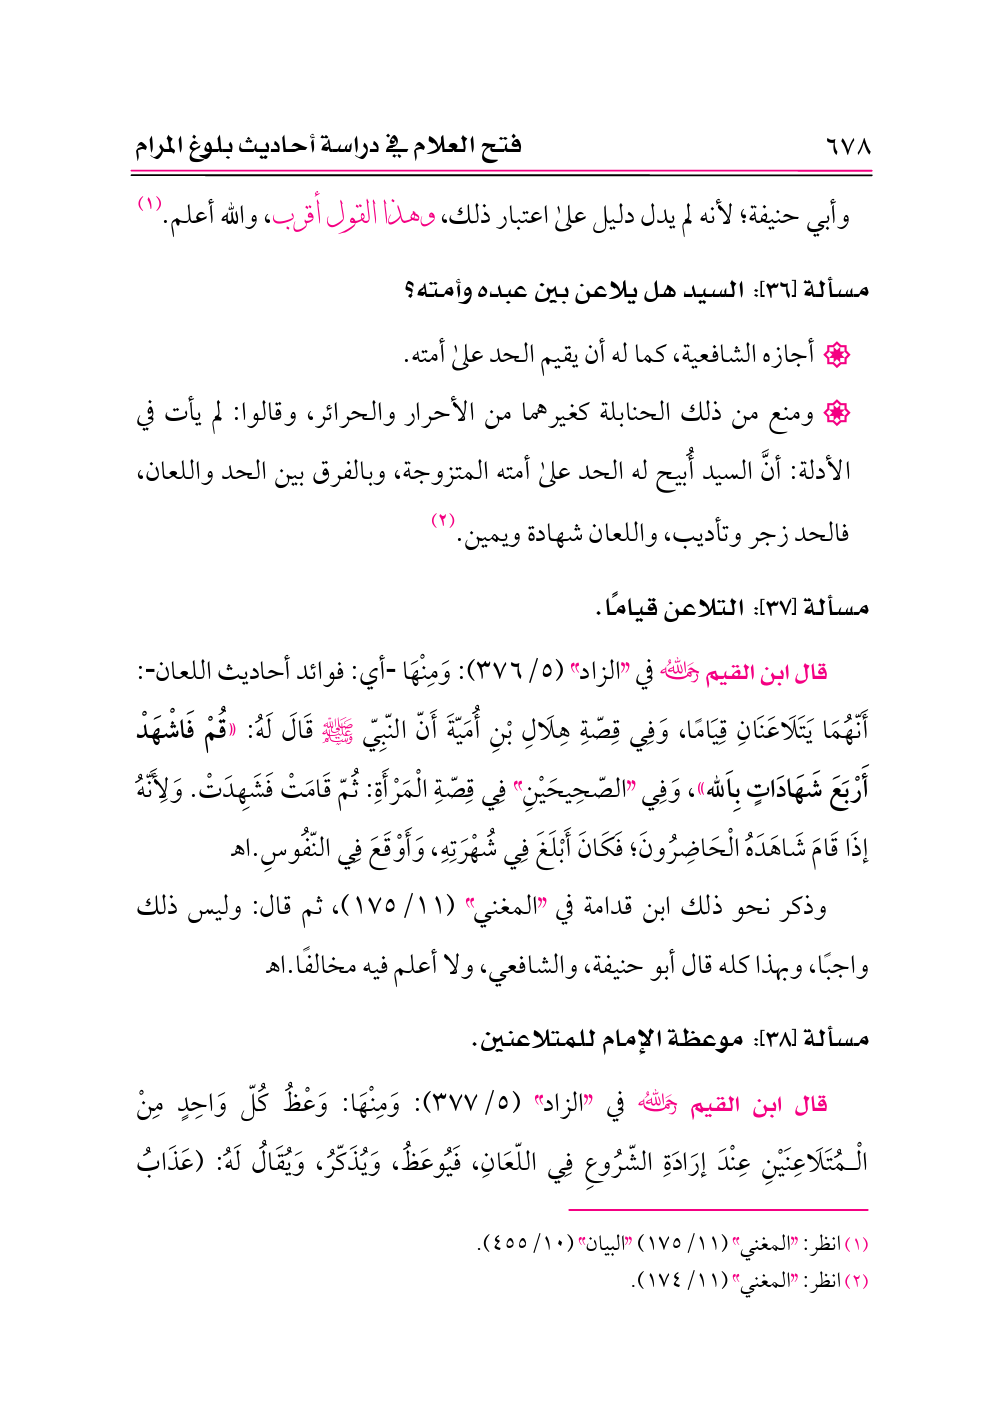 ٦٧٨ فتح العلام في دراسة أحاديث بلوغ المرام
وأبي حنيفة؛ لأنه لم يدل دليل علىٰ اعتبار ذلك، وهذا القول أقرب، والله أعلم.(١)
مسألة [٣٦]: السيد هل يلاعن بين عبده وأمته؟
أجازه الشافعية، كما له أن يقيم الحد علىٰ أمته.
ومنع من ذلك الحنابلة كغيرهما من الأحرار والحرائر، وقالوا: لم يأت في
الأدلة: أنَّ السيد أُبيح له الحد علىٰ أمته المتزوجة، وبالفرق بين الحد واللعان،
فالحد زجر وتأديب، واللعان شهادة ويمين.(٢)
مسألة [٣٧]: التلاعن قيامًا.
قال ابن القيم رحمه الله في "الزاد" (٥/ ٣٧٦): وَمِنْهَا -أي: فوائد أحاديث اللعان-:
أَنّهُمَا يَتَلَاعَنَانِ قِيَامًا، وَفِي قِصّةِ هِلَالِ بْنِ أُمَيّةَ أَنّ النّبِيّ ﷺ قَالَ لَهُ: «قُمْ فَاشْهَدْ
أَرْبَعَ شَهَادَاتٍ بِاَلله»، وَفِي "الصّحِيحَيْنِ" فِي قِصّةِ الْمَرْأَةِ: ثُمّ قَامَتْ فَشَهِدَتْ. وَلِأَنَّهُ
إذَا قَامَ شَاهَدَهُ الْحَاضِرُونَ؛ فَكَانَ أَبْلَغَ فِي شُهْرَتِهِ، وَأَوْقَعَ فِي النّفُوسِ.اهـ
وذكر نحو ذلك ابن قدامة في "المغني" (١١/ ١٧٥)، ثم قال: وليس ذلك
واجبًا، وبهذا كله قال أبو حنيفة، والشافعي، ولا أعلم فيه مخالفًا.اهـ
مسألة [٣٨]: موعظة الإمام للمتلاعنين.
قال ابن القيم رحمه الله في "الزاد" (٥/ ٣٧٧): وَمِنْهَا: وَعْظُ كُلّ وَاحِدٍ مِنْ
الْـمُتَلَاعِنَيْنِ عِنْدَ إرَادَةِ الشّرُوعِ فِي اللّعَانِ، فَيُوعَظُ، وَيُذَكّرُ، وَيُقَالُ لَهُ: (عَذَابُ
(١) انظر: "المغني" (١١/ ١٧٥) "البيان" (١٠/ ٤٥٥).
(٢) انظر: "المغني" (١١/ ١٧٤).